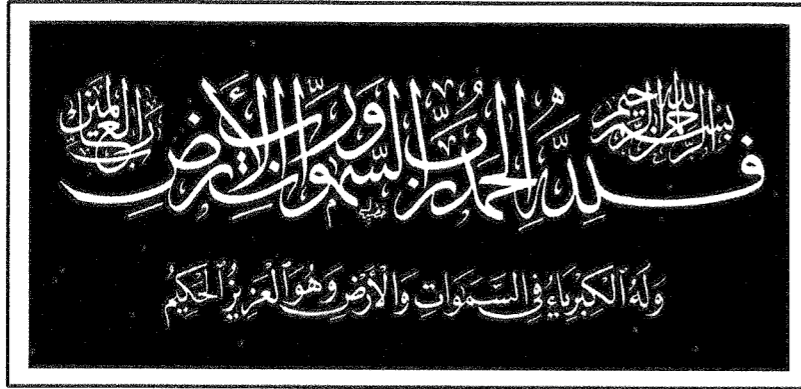 بسم الله الرحمن الرحيم
فَلِلَّهِ الْحَمْدُ رَبِّ السَّمٰوَاتِ وَرَبِّ الْأَرْضِ
رب العالمين
وَلَهُ ٱلْكِبْرِيَاءُ فِي السَّمَٰوَاتِ وَالْأَرْضِ وَهُوَ ٱلْعَزِيزُ ٱلْحَكِيمُ